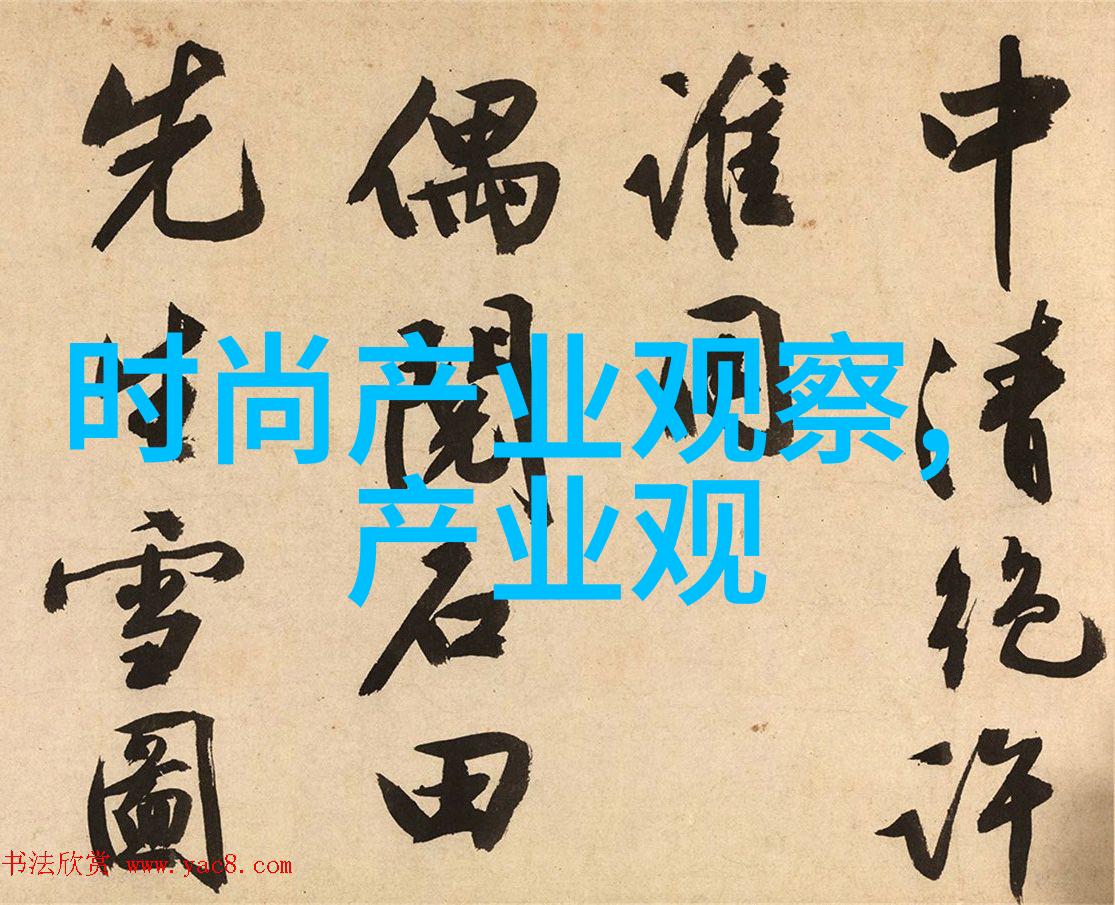 中清絶許
誰同
偶閱石田
先生雪圖
时尚产业观察,
产业观
书法欣赏 www.yac8.com